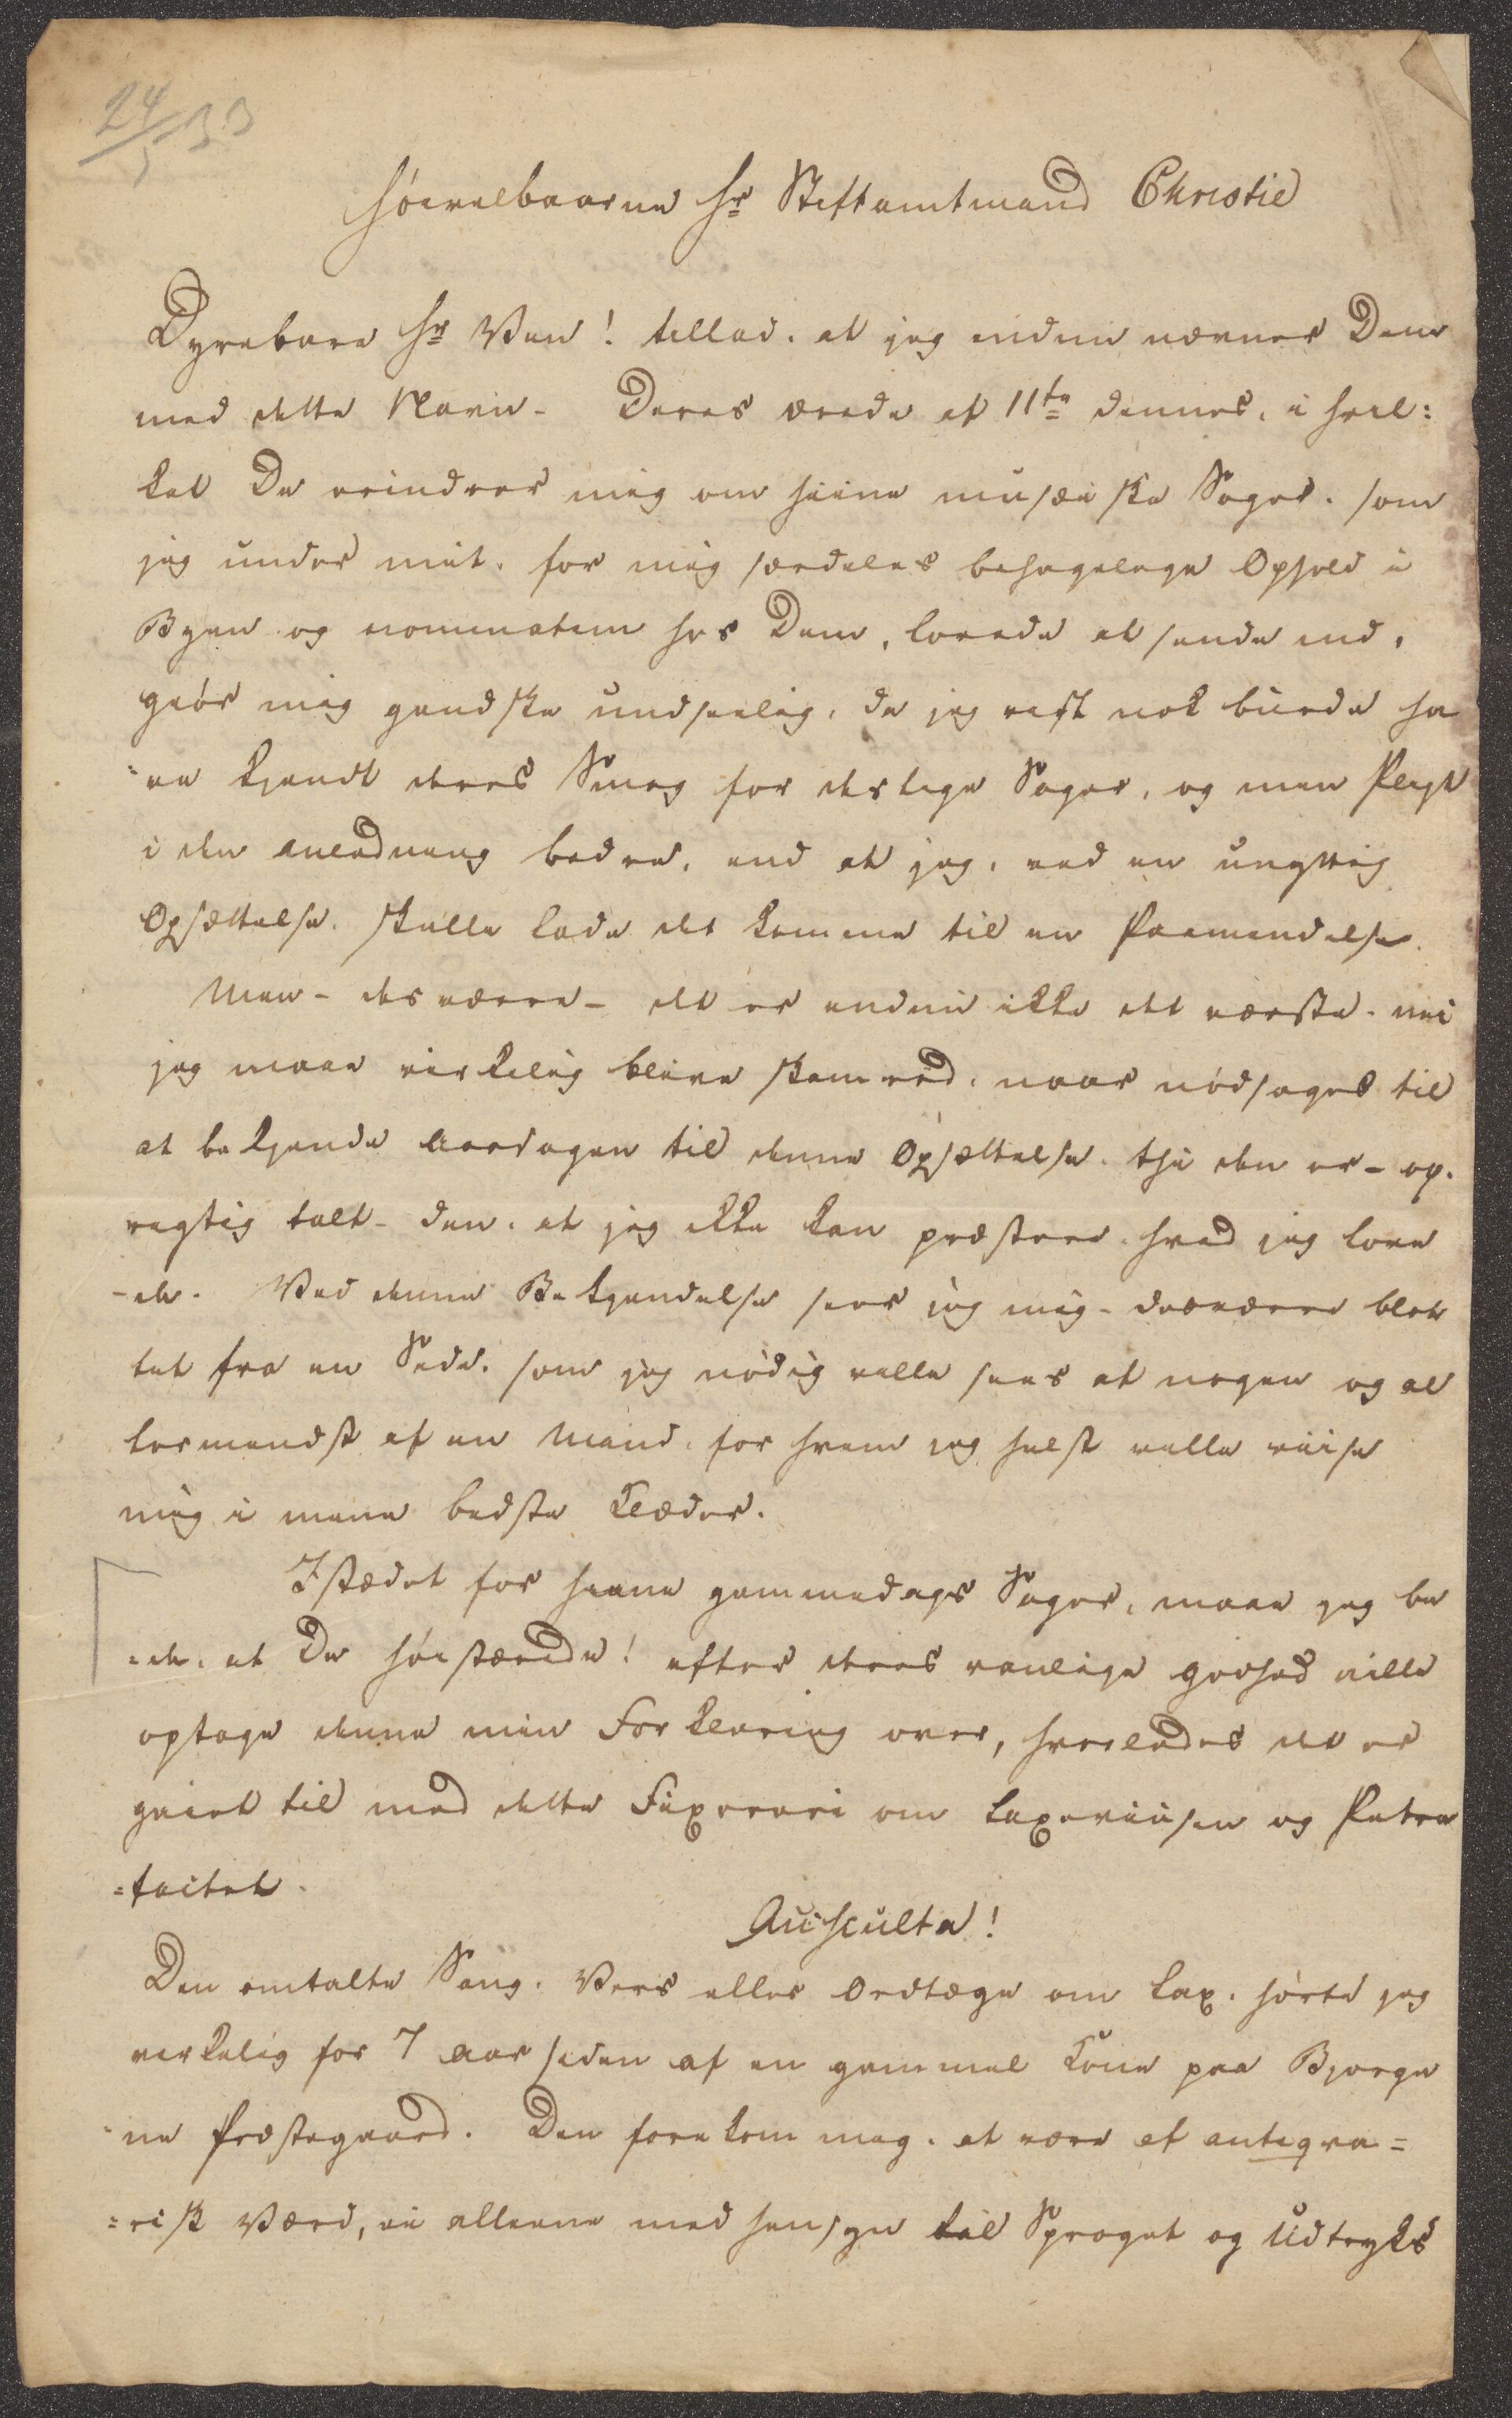 24/5 33
Höivelbaarne Hr Stiftamtmand Christie
Dyrebare Hr Ven! tillad, at jeg endnu nævner Dem
med dette Navn - Deres ærede af 11te dennes, i hvil=
ket De erindrer mig om hiine musæiske Sager, som
jeg under mit, for mig særdeles behagelige Ophold i
Byen og nominatim hos Dem, lovede at sende ind,
giör mig gandske undseelig, da jeg vist nok burde ha
=ve kjendt deres Smag for deslige Sager, og min Pligt
i den anledning bedre, end at jeg, ved en unyttig
Opsættelse, skulle lade det komme til en Paamindelse.
Men - desværre - det er endnu ikke det værste - nei
jeg maae virkelig blive skamröd, naar nödsages til
at bekjende Aarsagen til denne Opsættelse, thi den er - op-
rigtig talt - den, at jeg ikke kan præstere, hvad jeg love
-de. Ved denne Bekjendelse seer jeg mig - desværre blot
tet fra en Side, som jeg nödig ville sees af nogen og al
lermindst af en Mand, for hvem jeg helst ville viise
mig i mine bedste Klæder.
Istædet for hiine gammeldags Sager, maae jeg be
=de, at De höistærede! efter deres vanlige godhed ville
optage denne min Forklaring over, hvorledes det er
gaaet til med dette Fixereri om Laxeviisen og Petre
=factet.
Ausculta!
Den omtalte Sang, Vers eller Ordtøge om Lax, hörte jeg
virkelig for 7 Aar siden af en gammel Kone paa Bjerge
=ne Præstegaard. Den forekom mig, at være af antiqva=
=risk Værd, ei alleene med hensyn til Sproget og Udtryks